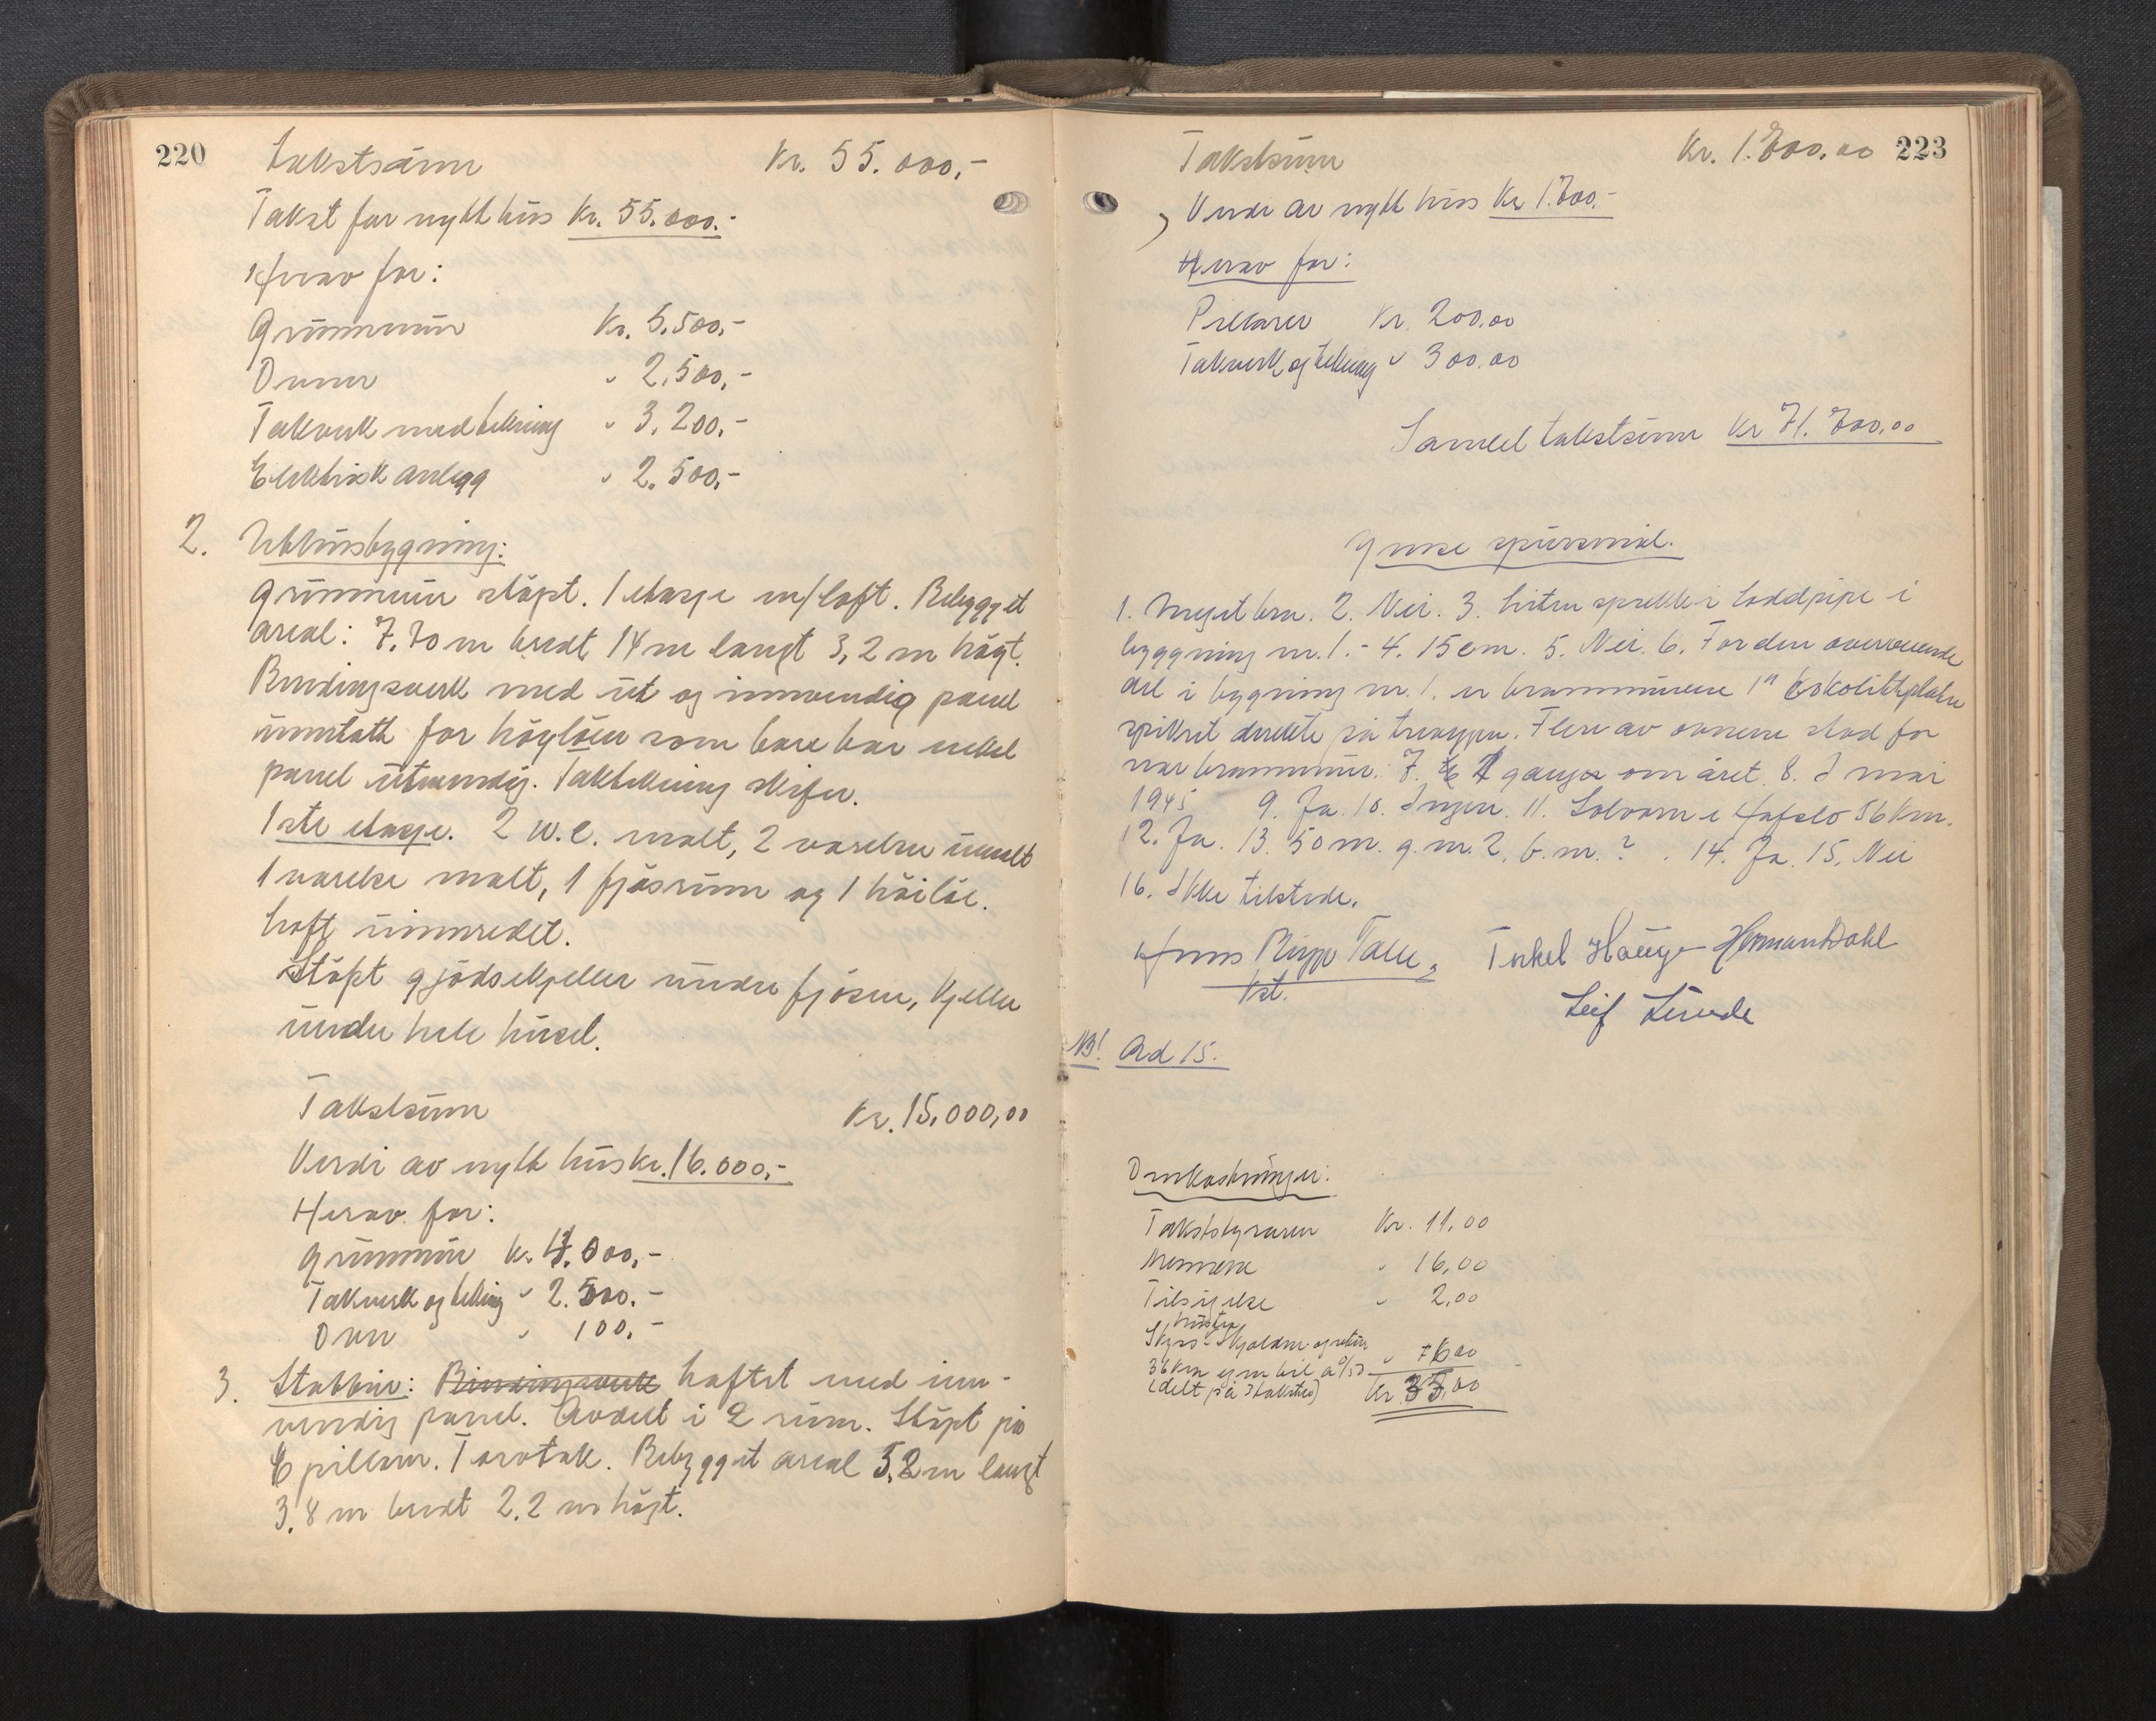 220
Takstsum Kr. 55.000,-
Takst for nytt hus Kr. 55.000.-
Herav for:
Grunnmur Kr. 5.500,-
Ovner " 2.500,-
Takverk med tekning " 3.200,-
Elektrisk anlegg " 2.500,-
2. Uthusbygning:
Grunnmur støpt. 1 etasje m/loft. Bebygget
areal: 7.70 m bredt 14 m langt 3,2 m høgt.
Bindingsverk med ut og innvendig panel
unntatt for høyløen som bare har enkel
panel utvendig. Taktekning skifer.
1ste etasje. 2 W.C. malt, 2 værelser umalt
1 værelse malt, 1 fjøsrum og 1 høiløe.
Loft uinnredet.
Støpt gjødselkjeller under fjøsen, Kjeller
under hele huset.
Takstsum Kr. 15.000,00
Verdi av nytt hus kr. 16.000,-
Herav for:
Grunnmur kr. 4.000,-
Takverk og tekning " 2.500.-
Ovn " 100,-
3. Stabbur: Bindingsverk laftet med inn-
vendig panel. Avdelt i 2 rum. Støpt på
6 pillarer. Torvtak. Bebygget areal 5,2 m langt
3,8 m bredt 2.2 m høgt.
223
Takstsum Kr. 1.800,00
Verdi av nytt hus Kr 1.800.-
Herav for:
Pillarer Kr. 200,00
Takverk og tekning " 300,00
Samlet takstsum Kr 71.800,00
Ymse spursmål.
1. Meget bra. 2. Nei. 3. Liten sprekk i loddpipe i
byggning nr. 1. - 4. 15 cm. 5. Nei. 6. For den overveiende
del i bygning nr. 1. er brannmurene 1" Eskolittplater
spikret direkte på trevegger. Flere av ovnene stod for
nær brannmur. 7. 1 gang om året. 8. I mai
1945 9. Ja. 10. Ingen. 11. Solvorn i Hafslo 56 km.
12. Ja. 13. 50 m. g.nr. 2, b.nr. ? . 14. Ja. 15. Nei
16. Ikke tilstede.
Torkel Hauge Herman Dahl
kst.
Leif Lunde
NB! Ad 15.
Omkostninger:
Takstbyraren Kr. 11,00
Mennene " 16,00
Tilsigelse " 2,00
Skyss Skjolden og retur " 6,00
36 km egen bil a 0/50
(delt på 3 takster) Kr 35,00